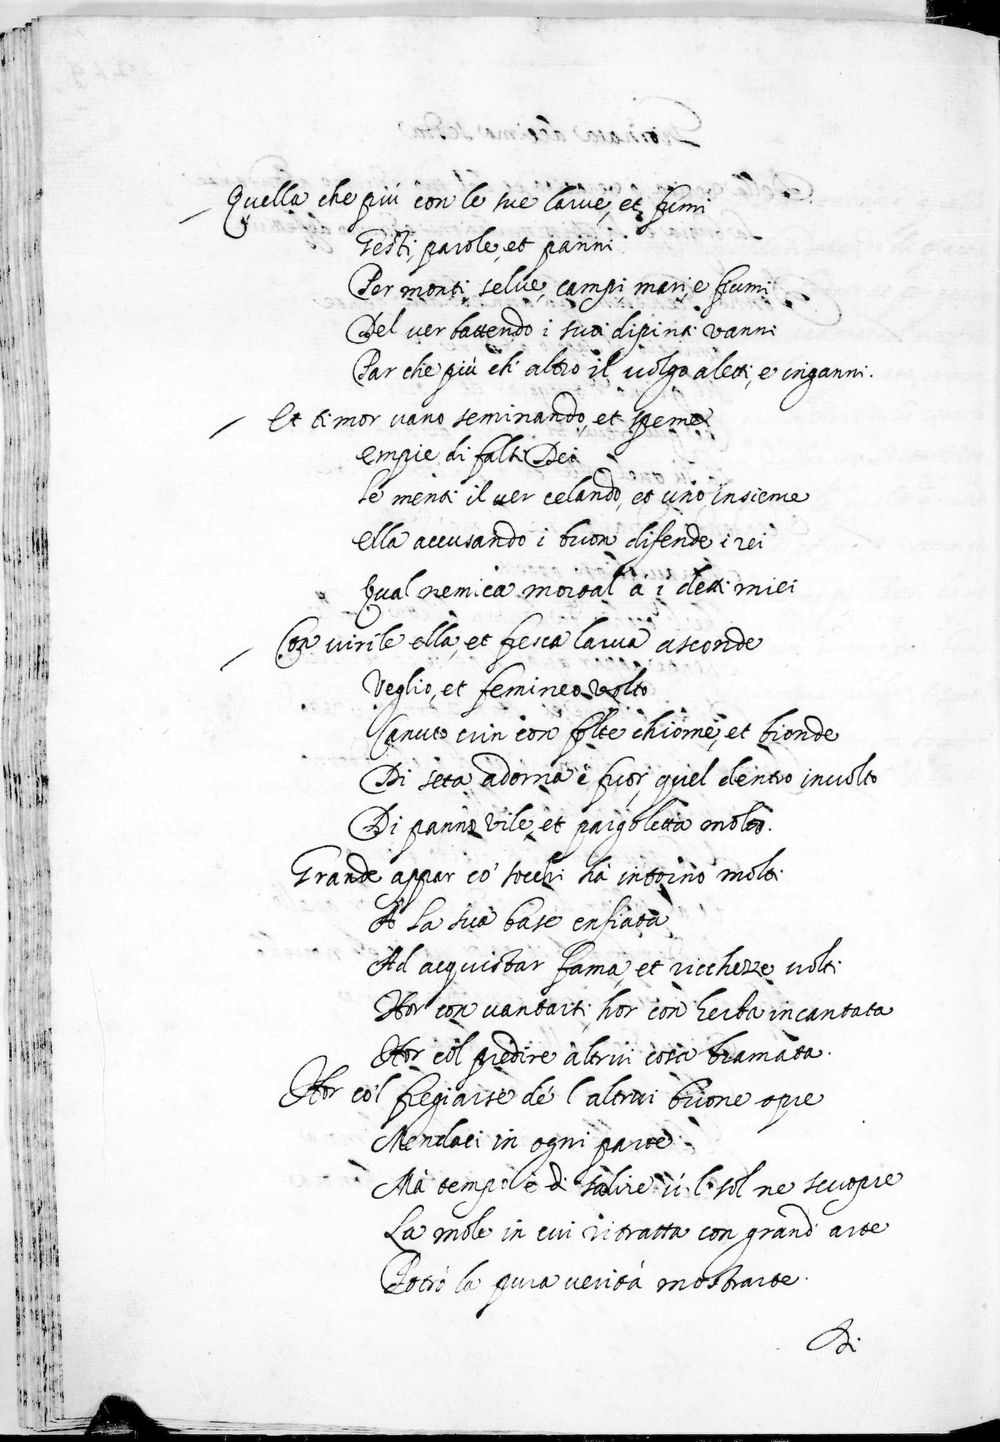 Quella che più con le sue larve, et fumi
Gesti, parole, et panni
Per monti, selve, campi, mari, e fiumi
Del ver battendo i suoi dipinti vanni
Par che più ch' altro il volgo aletti, e inganni.
Et timor vano seminando, et speme
empie di falsi Dei
Le menti il ver celando, et uno insieme
ella accusando i buon difende i rei
Qual nemica mortal a i detti miei
Con virile ella, et fresca larva asconde
Veglio, et femineo volto
Canuto crin con folte chiome, et bionde
Di seta adorna è fuor, quel dentro involto
Di panno vile, et pargoletta molto.
Grande appar co' socchi hà intorno molti
A la sua base enfiata
Ad acquistar fama, et ricchezze volti
Hor con vantarsi, hor con herba incantata
Hor col predire altrui cosa bramata.
Hor co'l fregiarse de' l'altrui buone opre
Mendaci in ogni parte
Mà temp' è di salire ù 'l sol ne scuopre
La mole in cui ritratta con grand' arte
Potrò la pura verità mostrarte.
Di